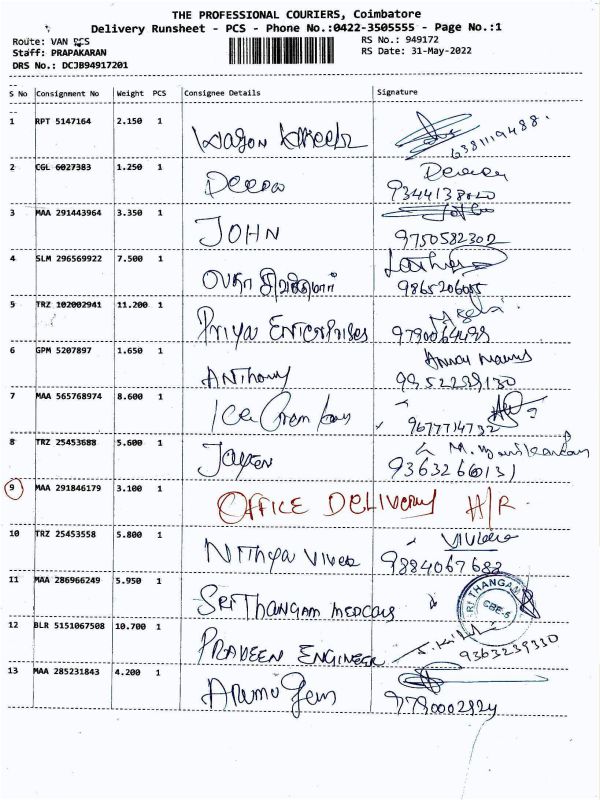 THE PROFESSIONAL COURIERS, Coimbatore
Delivery Runsheet - PCS - Phone No.:0422-3505555 - Page No.:1
Route: VAN PCS
RS No.: 949172
Staff: PRAPAKARAN
RS Date: 31-May-2022
DRS No.: DCJB94917201
S No Consignment No Weight PCS Consignee Details Signature
1 RPT 5147164 2.150 1
6381119488.
2 CGL 6027383 1.250 1
3 MAA 291443964 3.350 1 JOHN
9750582302
4 SLM 296569922 7.500 1
9865206085
5 TRZ 102002941 11.200 1 Priya Enterprises
6 GPM 5207897 1.650 1 Anthony
9952299130
7 MAA 565768974 8.600 1
9677714732
8 TRZ 25453688 5.600 1
9 MAA 291846179 3.100 1 OFFICE DELIVERY H/R
10 TRZ 25453558 5.800 1 Nithya Vivek
9884067682
11 MAA 286966249 5.950 1 Sri Thangam
RI THANGAM
CBE-5
12 BLR 5151067508 10.700 1 PRAVEEN ENGINEER
9363239330
13 MAA 285231843 4.200 1
9790002924